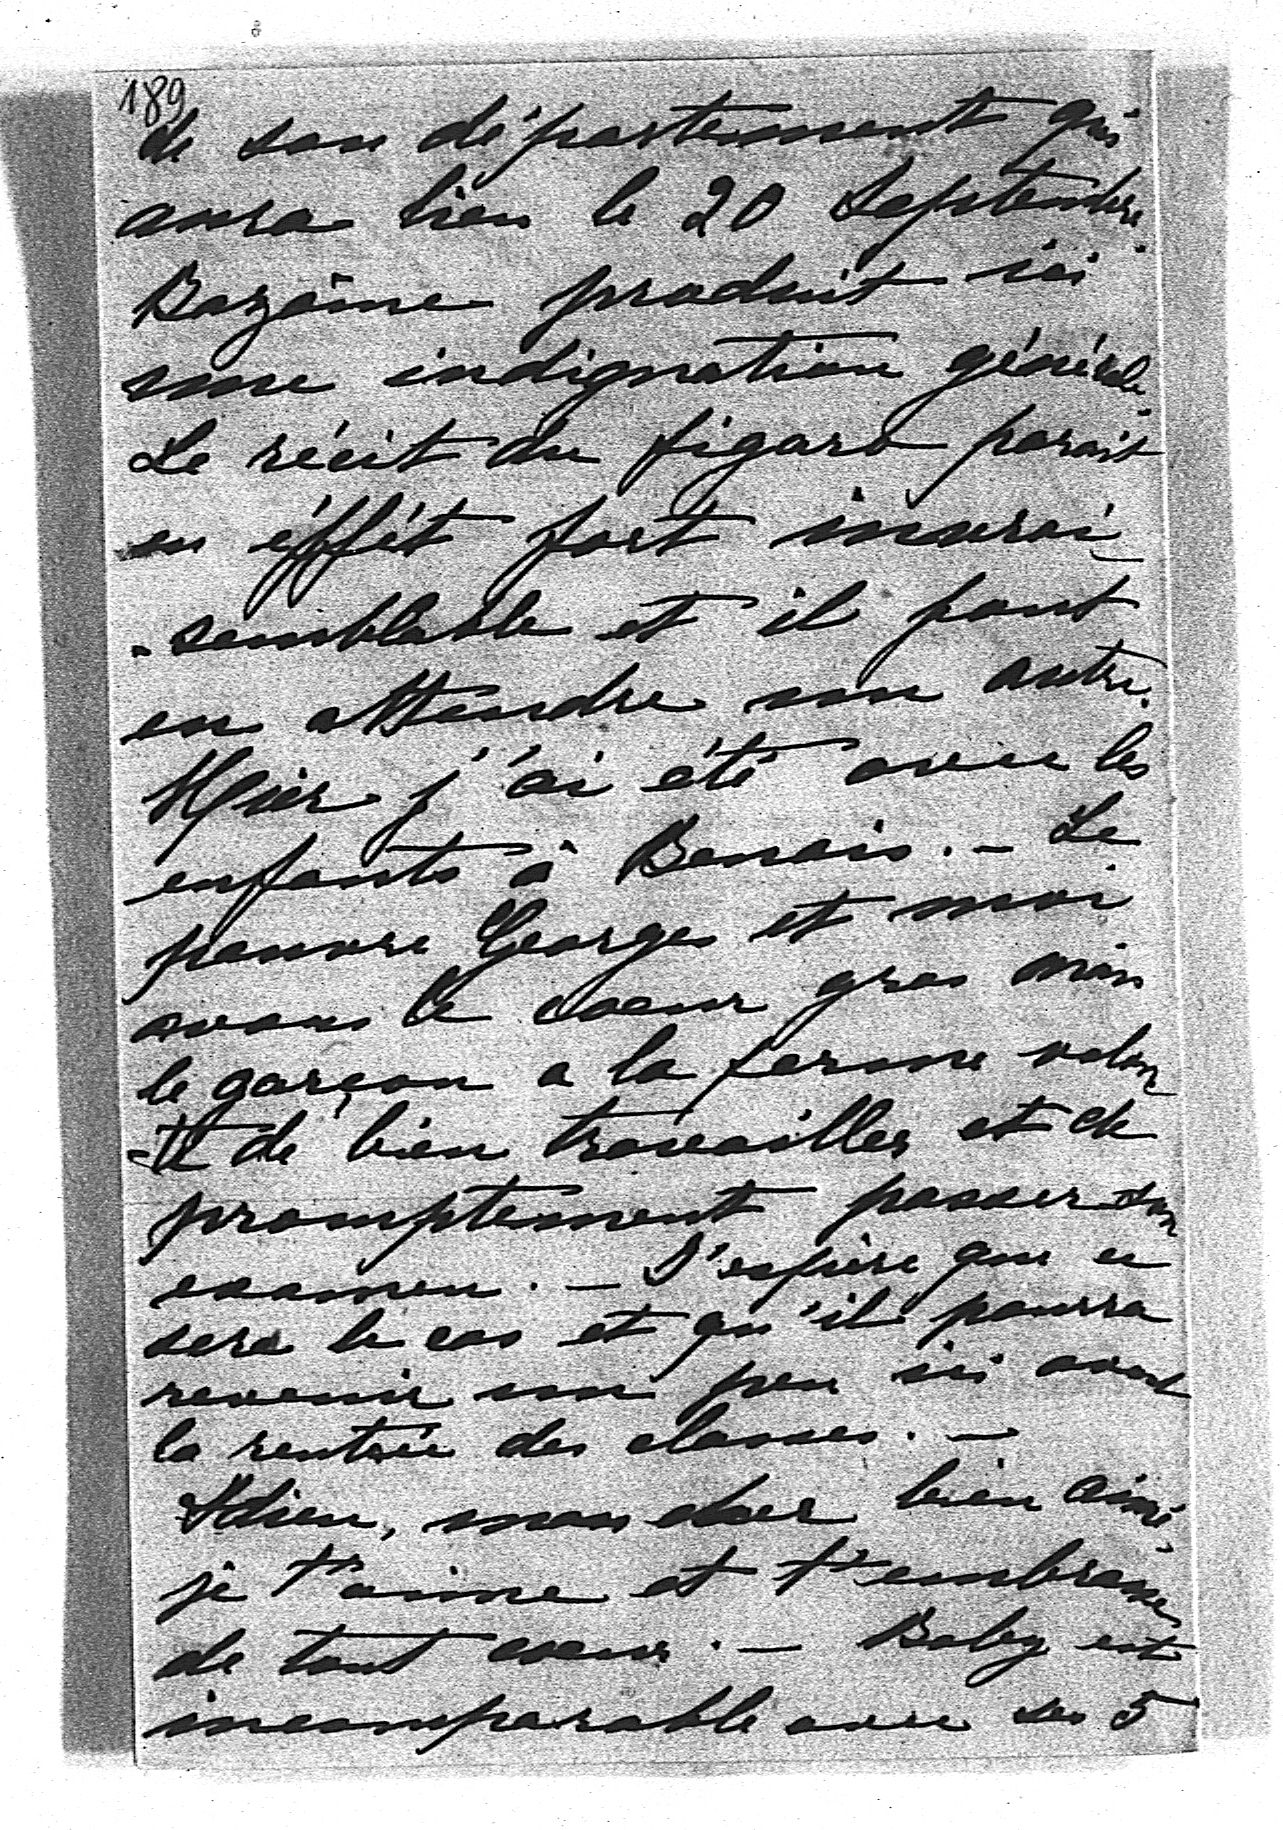 189
de son département qui
aura lieu le 20 Septembre.
Bazaine produit ici
une indignation générale.
Le récit du figaro parait
en éffét fort invrai
-semblable et il faut
en attendre un autre.
Hier j'ai été avec les
enfants à Benais. — Le
pauvre Georges et moi
avons le coeur gros mais
le garçon a la ferme volon
-té de bien travailler et de
promptement passer son
examen. — J'espère que ce
sera le cas et qu'il pourra
revenir un peu ici avant
la rentrée des classes. —
Adieu, mon cher bien aimé,
je t'aime et t'embrasse
de tout coeur. — Baby est
incomparable avec ses 5